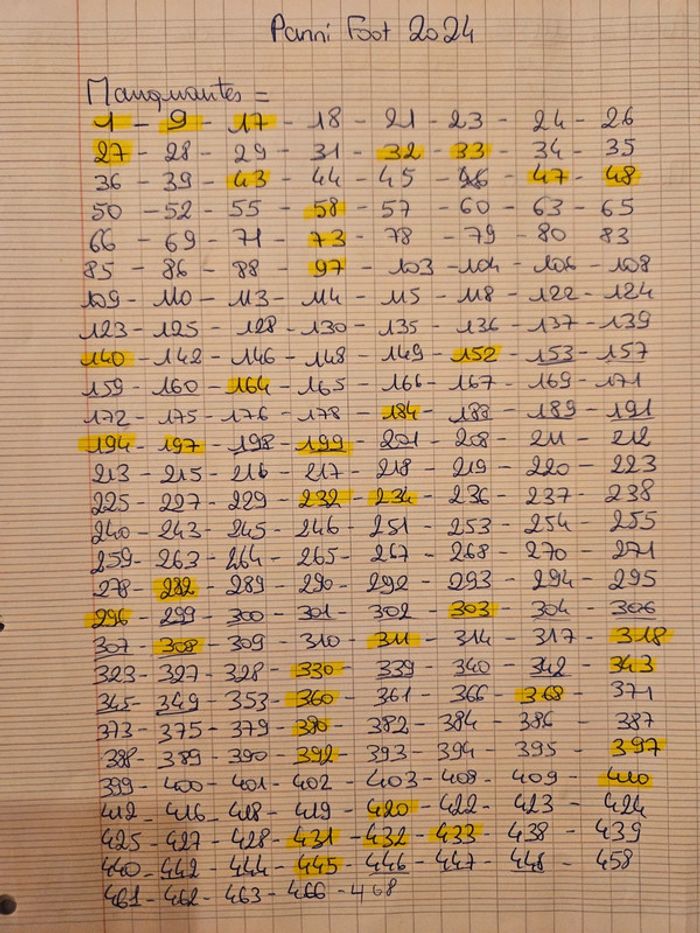 Panni Foot 2024
Manquantes =
1 - 9 - 17 - 18 - 21 - 23 - 24 - 26
27 - 28 - 29 - 31 - 32 - 33 - 34 - 35
36 - 39 - 43 - 44 - 45 - 46 - 47 - 48
50 - 52 - 55 - 58 - 57 - 60 - 63 - 65
66 - 69 - 71 - 73 - 78 - 79 - 80 83
85 - 86 - 88 - 97 - 103 - 104 - 106 - 108
109 - 110 - 113 - 114 - 115 - 118 - 122 - 124
123 - 125 - 128 - 130 - 135 - 136 - 137 - 139
140 - 142 - 146 - 148 - 149 - 152 - 153 - 157
159 - 160 - 164 - 165 - 166 - 167 - 169 - 171
172 - 175 - 176 - 178 - 184 - 188 - 189 - 191
194 - 197 - 198 - 199 - 201 - 208 - 211 - 212
213 - 215 - 216 - 217 - 218 - 219 - 220 - 223
225 - 227 - 229 - 232 - 234 - 236 - 237 - 238
240 - 243 - 245 - 246 - 251 - 253 - 254 - 255
259 - 263 - 264 - 265 - 267 - 268 - 270 - 271
278 - 282 - 289 - 290 - 292 - 293 - 294 - 295
296 - 299 - 300 - 301 - 302 - 303 - 304 - 306
307 - 308 - 309 - 310 - 311 - 314 - 317 - 318
323 - 327 - 328 - 330 - 339 - 340 - 342 - 343
345 - 349 - 353 - 360 - 361 - 366 - 368 - 371
373 - 375 - 379 - 380 - 382 - 384 - 386 - 387
388 - 389 - 390 - 392 - 393 - 394 - 395 - 397
399 - 400 - 401 - 402 - 403 - 408 - 409 - 410
412 - 416 - 418 - 419 - 420 - 422 - 423 - 424
425 - 427 - 428 - 431 - 432 - 433 - 438 - 439
440 - 442 - 444 - 445 - 446 - 447 - 448 - 458
461 - 462 - 463 - 466 - 468